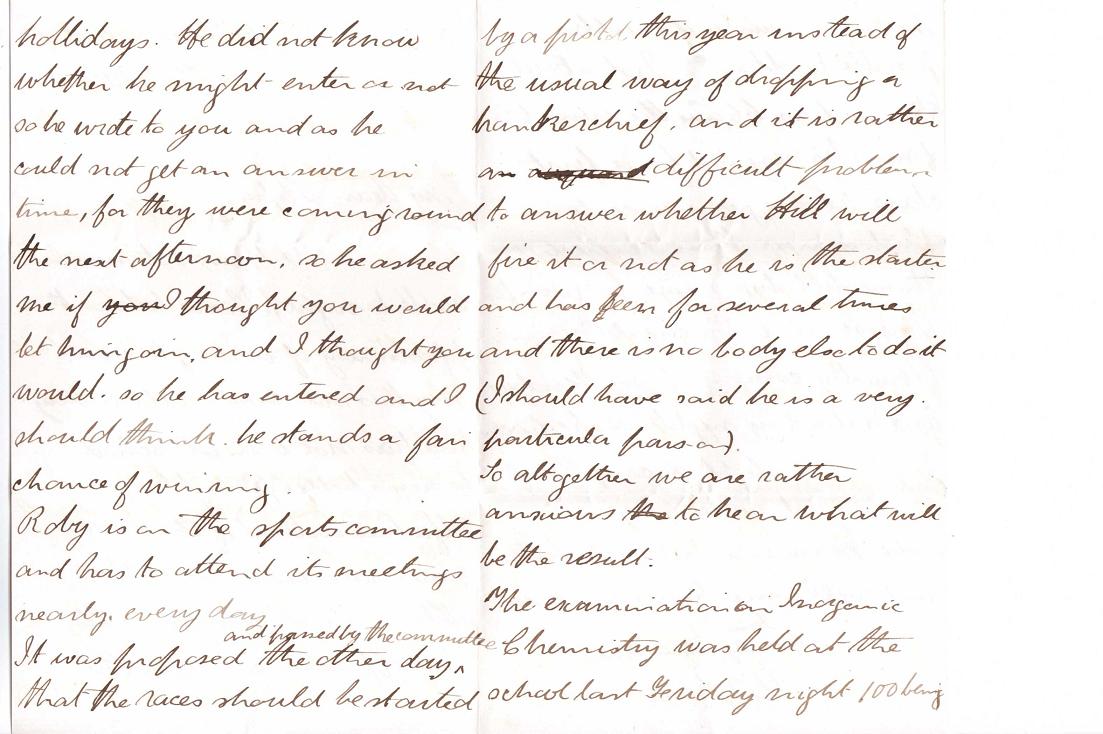 hollidays. He did not know
whether he might enter or not
so he wrote to you and as he
could not get an answer in
time, for they were coming round
the next afternoon, so he asked
me if you I thought you would
let him go in, and I thought you
would. so he has entered and I
should think he stands a fair
chance of winning.
Roby is on the sports committee
and has to attend its meetings
nearly every day
and passed by the committee
It was proposed the other day ^
that the races should be started
by a pistol this year instead of
the usual way of dropping a
hankerchief, and it is rather
an difficult problem
to answer whether Hill will
fire it or not as he is the starter
and has been for several times
and there is no body else to do it
(I should have said he is a very
particular parson).
So altogether we are rather
anxious the to hear what will
be the result.
The examination in Inorganic
Chemistry was held at the
school last Friday night 100 being